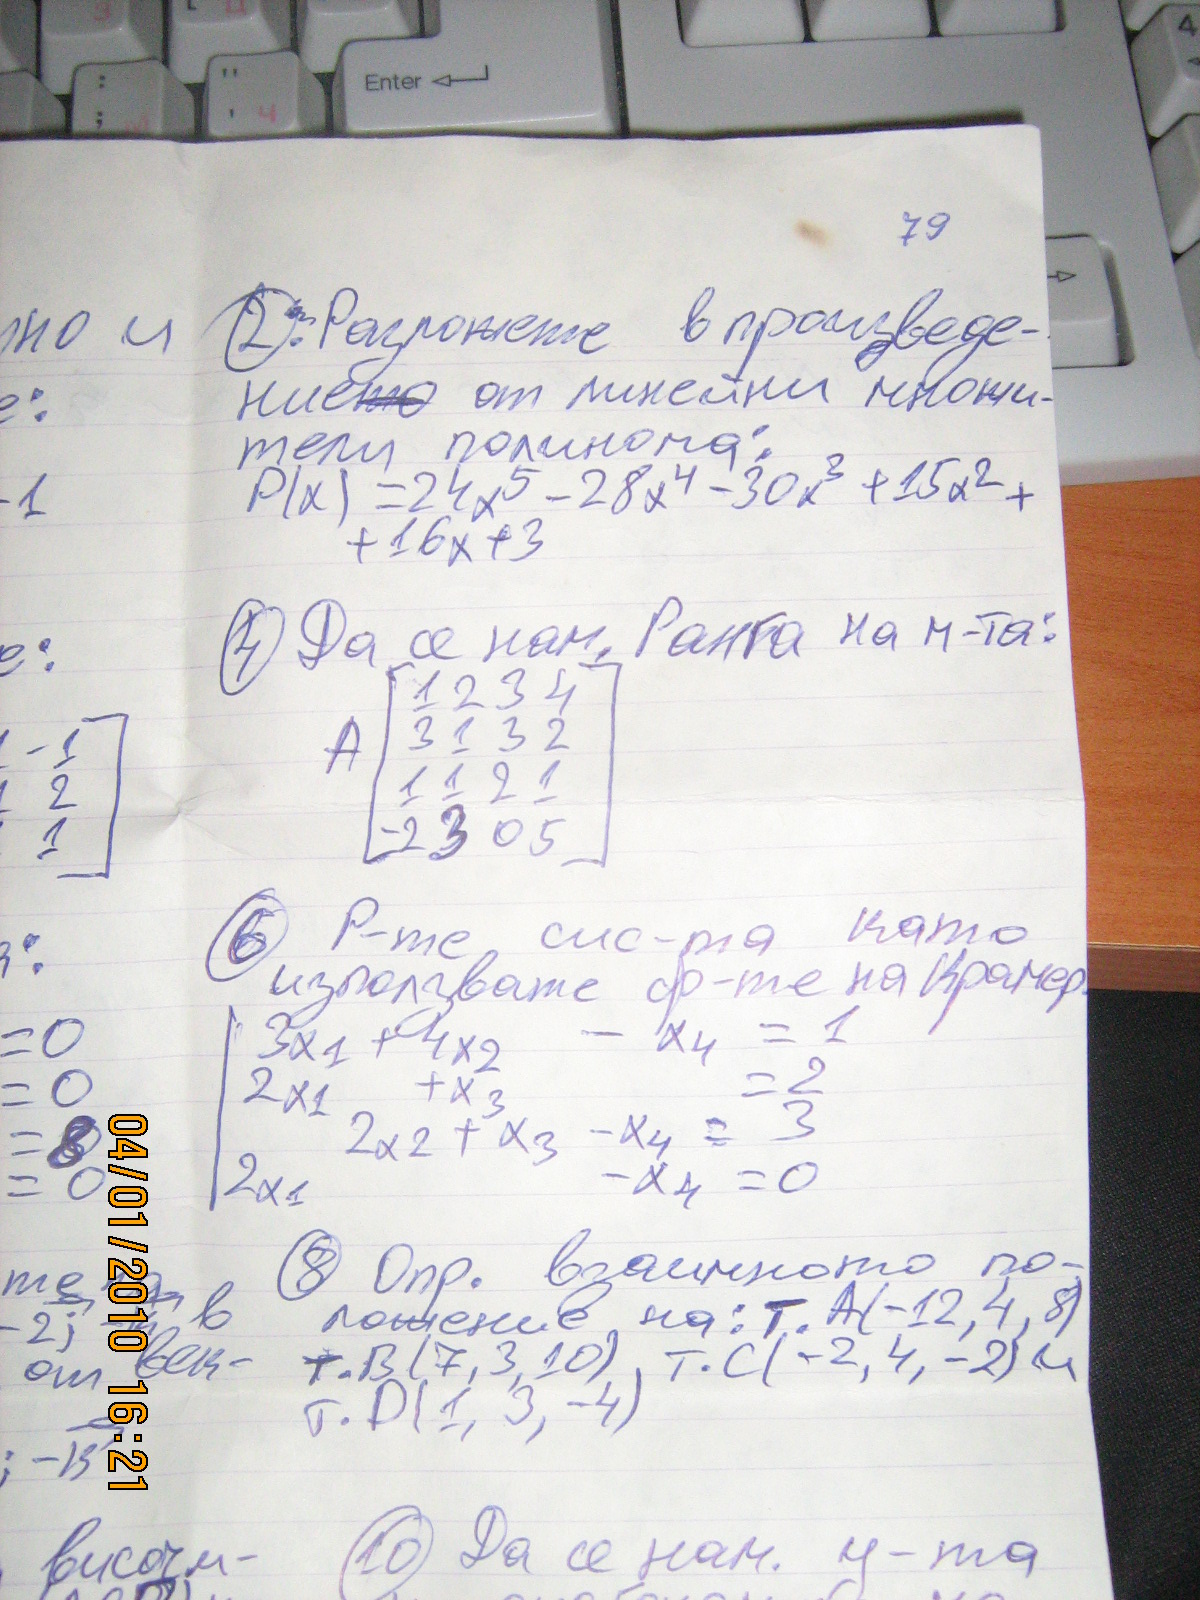 Enter
79
лно и
е:
-1
е:
1 -1
1 2
1
=0
=0
=8
=0
-2; в
от век-
; -B
височи-
②: Разложете в произведе-
ние от линейни множи-
тели полинома:
P(x) = 24x⁵ - 28x⁴ - 30x³ + 15x² +
+ 16x + 3
④ Да се нам. Ранга на м-та:
1 2 3 4
3 1 3 2
A
1 1 2 1
-2 3 0 5
⑥ Р-те сис-та като
използвате ф-те на Крамер.
3x1 + 4x2 - x4 = 1
2x1 + x3 = 2
2x2 + x3 - x4 = 3
2x1 - x4 = 0
⑧ Опр. взаимното по-
ложение на: т. A(-12, 4, 8)
т. B(7, 3, 10), т. C(-2, 4, -2) и
т. D(1, 3, -4)
⑩ Да се нам. у-та
04/01/2010 16:21